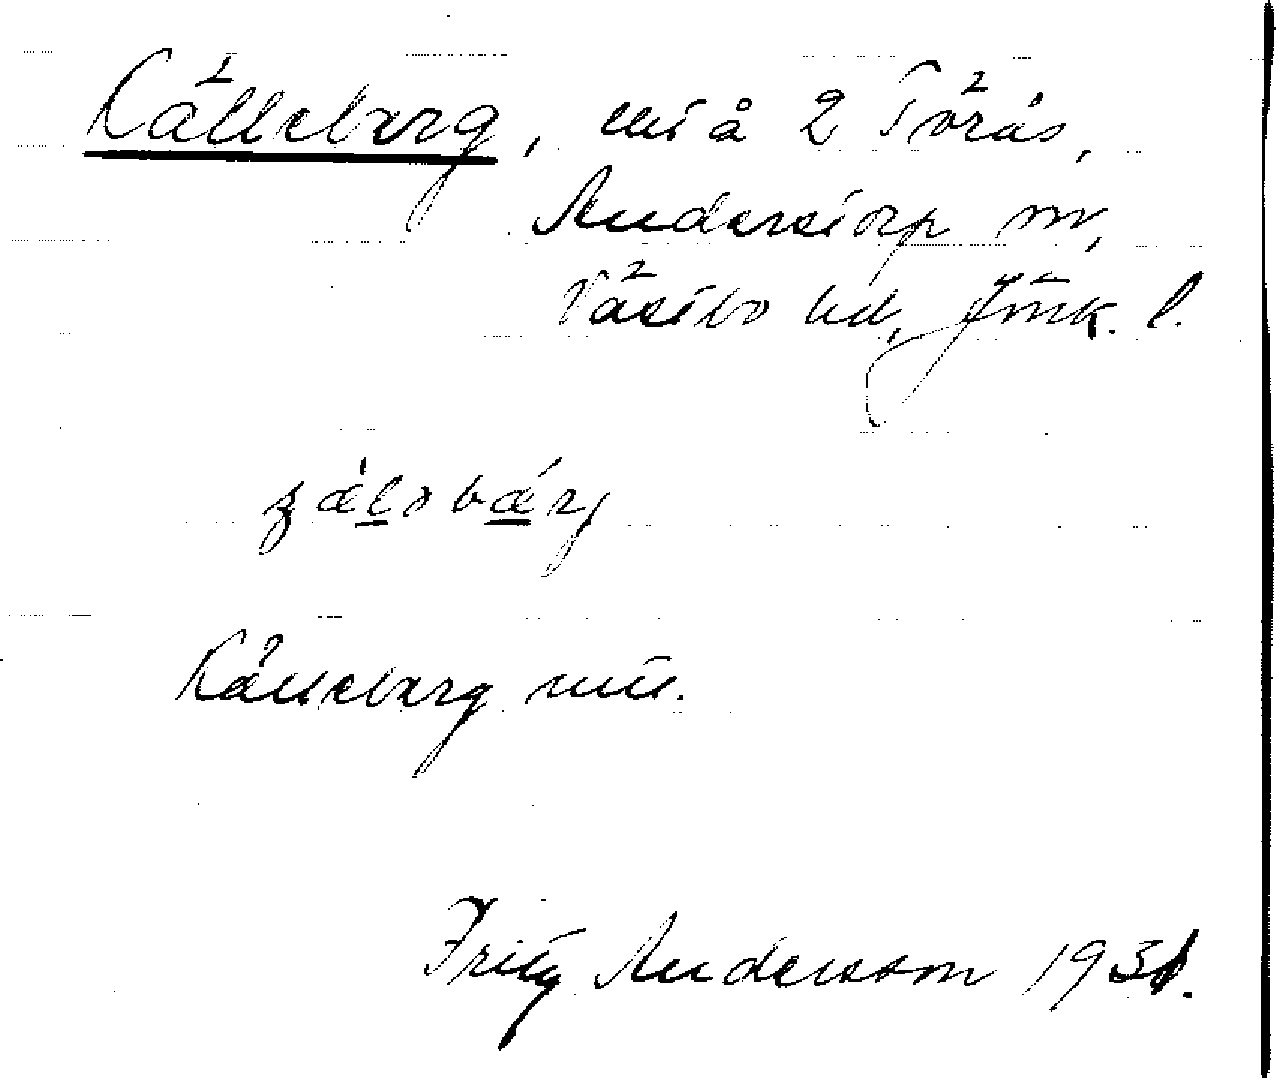 Källeberg, utj å 2 Törås,
Anderstorp sn,
Västbo hd, Jönk. l.
Källeberg
Fritz Andersson 1931.